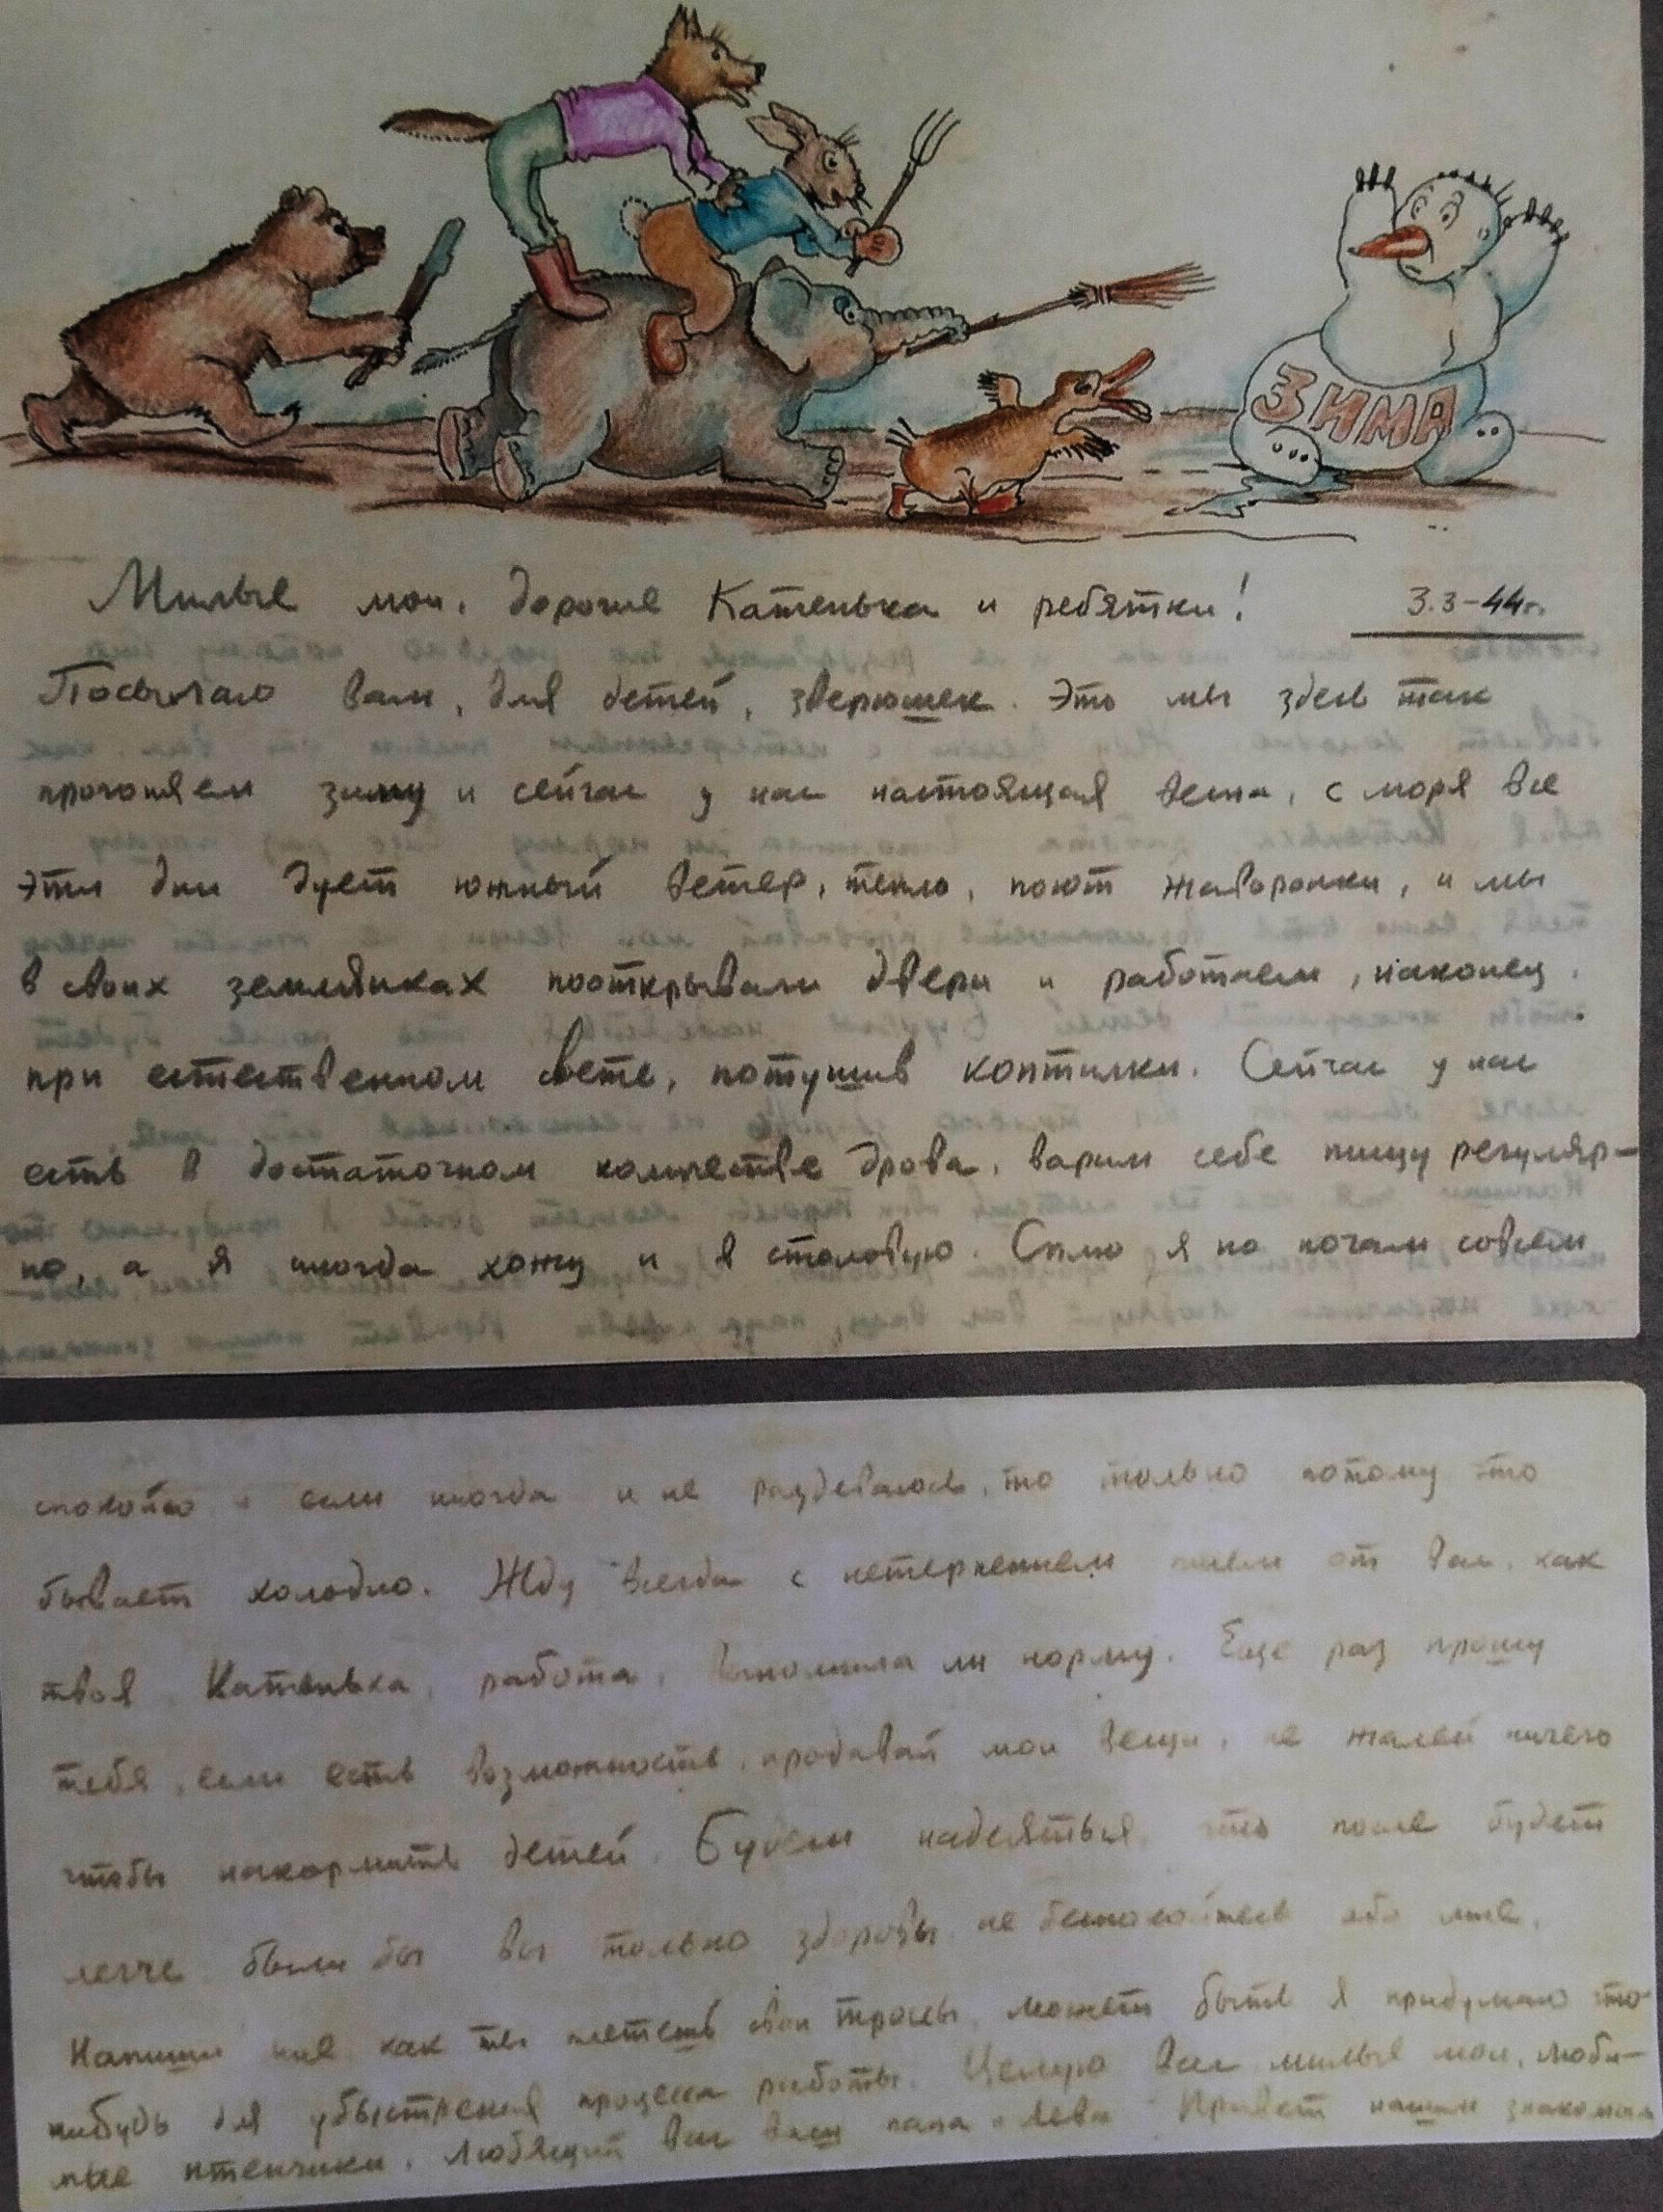 ЗИМА
Милые мои, дорогие Катенька и ребятки!
3.3-44г.
Посылаю вам, для детей, зверюшек. Это мы здесь так
прогоняем зиму и сейчас у нас настоящая весна, с моря все
эти дни дует южный ветер, тепло, поют жаворонки, и мы
в своих землянках пооткрывали двери и работаем, наконец,
при естественном свете, потушив коптилки. Сейчас у нас
есть в достаточном количестве дрова, варим себе пищу регуляр-
но, а я иногда хожу и в столовую. Сплю я по ночам совсем
спокойно и если иногда и не раздеваюсь, то только потому что
бывает холодно. Жду всегда с нетерпением писем от вас, как
твоя, Катенька, работа, выполнила ли норму. Еще раз прошу
тебя, если есть возможность, продавай мои вещи, не жалей ничего
чтобы накормить детей. Будем надеяться, что после будет
легче были бы вы только здоровы, не беспокойтесь обо мне.
Напиши мне, как ты плетешь свои тросы, может быть я придумаю что-
нибудь для убыстрения процесса работы. Целую вас, милые мои, люби-
мые птенчики. Любящий вас ваш папа и Лева. Привет нашим знакомым